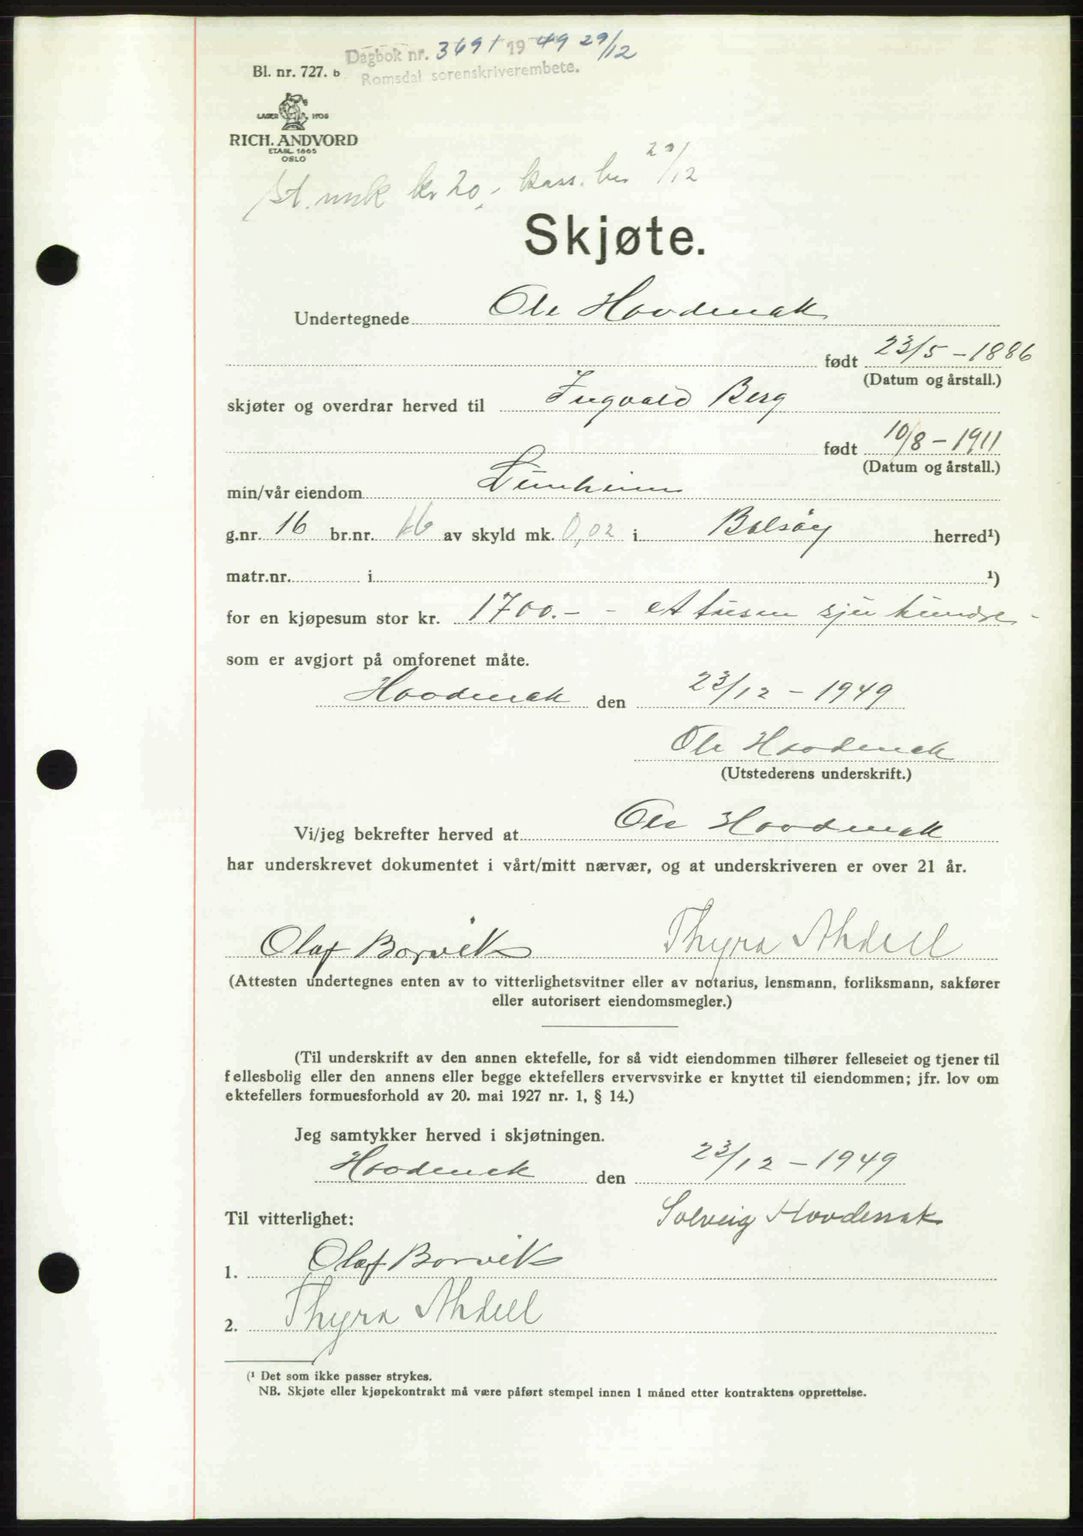 Dagbok nr. 3691 1949 29/12
Romsdal sorenskriverembete.
Bl. nr. 727. b
LAGER 1708
RICH. ANDVORD
ETABL. 1865
OSLO
St. mrk kr 20,- kass. 29/12
Skjøte.
Undertegnede Ole Hovdenak
født 23/5 - 1886
(Datum og årstall.)
skjøter og overdrar herved til Ingvald Berg
født 10/8 - 1911
(Datum og årstall.)
min/vår eiendom
g.nr. 16 br.nr. 16 av skyld mk. 0,02 i Bolsøy herred¹)
matr.nr. i ¹)
for en kjøpesum stor kr. 1700.- - et tusen sju hundre -
som er avgjort på omforenet måte.
Hovdenak den 23/12 - 1949
Ole Hovdenak
(Utstederens underskrift.)
Vi/jeg bekrefter herved at Ole Hovdenak
har underskrevet dokumentet i vårt/mitt nærvær, og at underskriveren er over 21 år.
Olaf Borvik Thyra Ahdell
(Attesten undertegnes enten av to vitterlighetsvitner eller av notarius, lensmann, forliksmann, sakfører
eller autorisert eiendomsmegler.)
(Til underskrift av den annen ektefelle, for så vidt eiendommen tilhører felleseiet og tjener til
fellesbolig eller den annens eller begge ektefellers ervervsvirke er knyttet til eiendommen; jfr. lov om
ektefellers formuesforhold av 20. mai 1927 nr. 1, § 14.)
Jeg samtykker herved i skjøtningen.
Hovdenak den 23/12 - 1949
Til vitterlighet: Solveig Hovdenak
1. Olaf Borvik
2. Thyra Ahdell
(¹ Det som ikke passer strykes.
NB. Skjøte eller kjøpekontrakt må være påført stempel innen 1 måned etter kontraktens opprettelse.